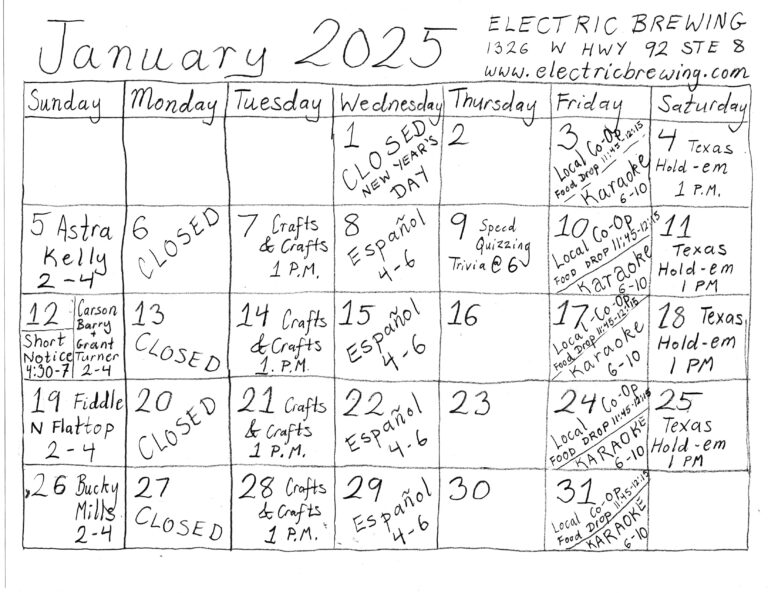 January 2025
ELECTRIC BREWING
1326 W HWY 92 STE 8
www.electricbrewing.com
Sunday Monday Tuesday Wednesday Thursday Friday Saturday
1
CLOSED
NEW YEAR'S
DAY
2
3
Local Co-Op
Food Drop 11:45-12:15
Karaoke
6-10
4 Texas
Hold-em
1 P.M.
5 Astra
Kelly
2-4
6
CLOSED
7 Crafts
& Crafts
1 P.M.
8
Español
4-6
9 Speed
Quizzing
Trivia @ 6
10
Local Co-Op
FOOD DROP 11:45-12:15
Karaoke
6-10
11
Texas
Hold-em
1 PM
12
Short
Notice
4:30-7
Carson
Barry
+
Grant
Turner
2-4
13
CLOSED
14 Crafts
& Crafts
1. P.M.
15
Español
4-6
16
17
Local Co-Op
Food Drop 11:45-12:15
Karaoke
6-10
18 Texas
Hold-em
1 PM
19 Fiddle
N Flattop
2-4
20
CLOSED
21 Crafts
& Crafts
1 P.M.
22
Español
4-6
23
24
Local Co-Op
FOOD DROP 11:45-12:15
KARAOKE
6-10
25
Texas
Hold-em
1 PM
26 Bucky
Mills
2-4
27
CLOSED
28 Crafts
& Crafts
1 P.M.
29
Español
4-6
30
31
Local Co-Op
Food Drop 11:45-12:15
KARAOKE
6-10